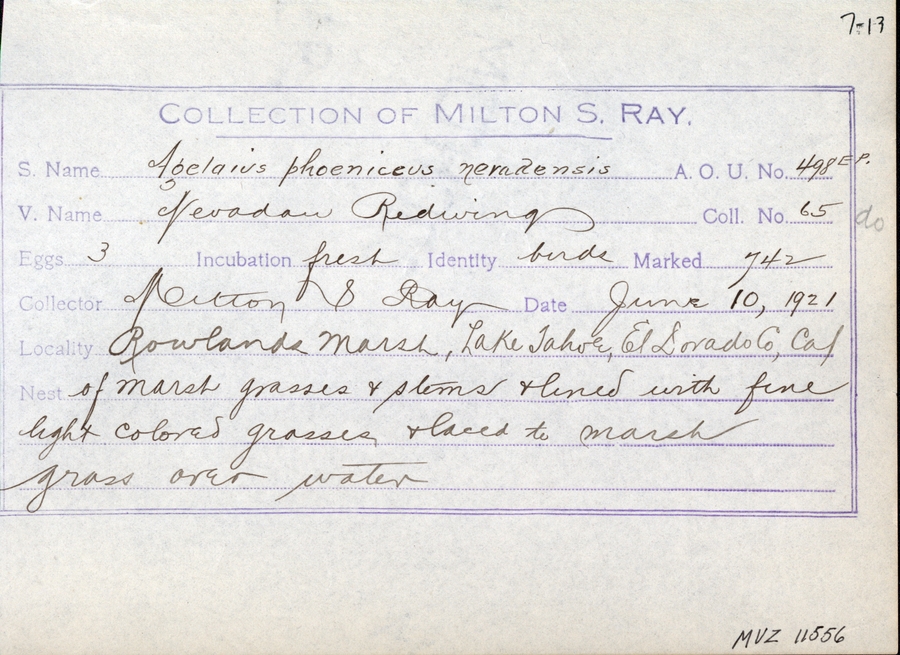 7-13
COLLECTION OF MILTON S. RAY.
S. Name Agelaius phoeniceus nevadensis A. O. U. No. 498 E P.
V. Name Nevadan Redwing Coll. No. 65 do
Eggs 3 Incubation fresh Identity birds Marked 742
Collector Milton S Ray Date June 10, 1921
Locality Rowlands Marsh, Lake Tahoe, El Dorado Co, Cal
Nest of marsh grasses & stems & lined with fine
light colored grasses, & laced to marsh
grass over water
MVZ 11556